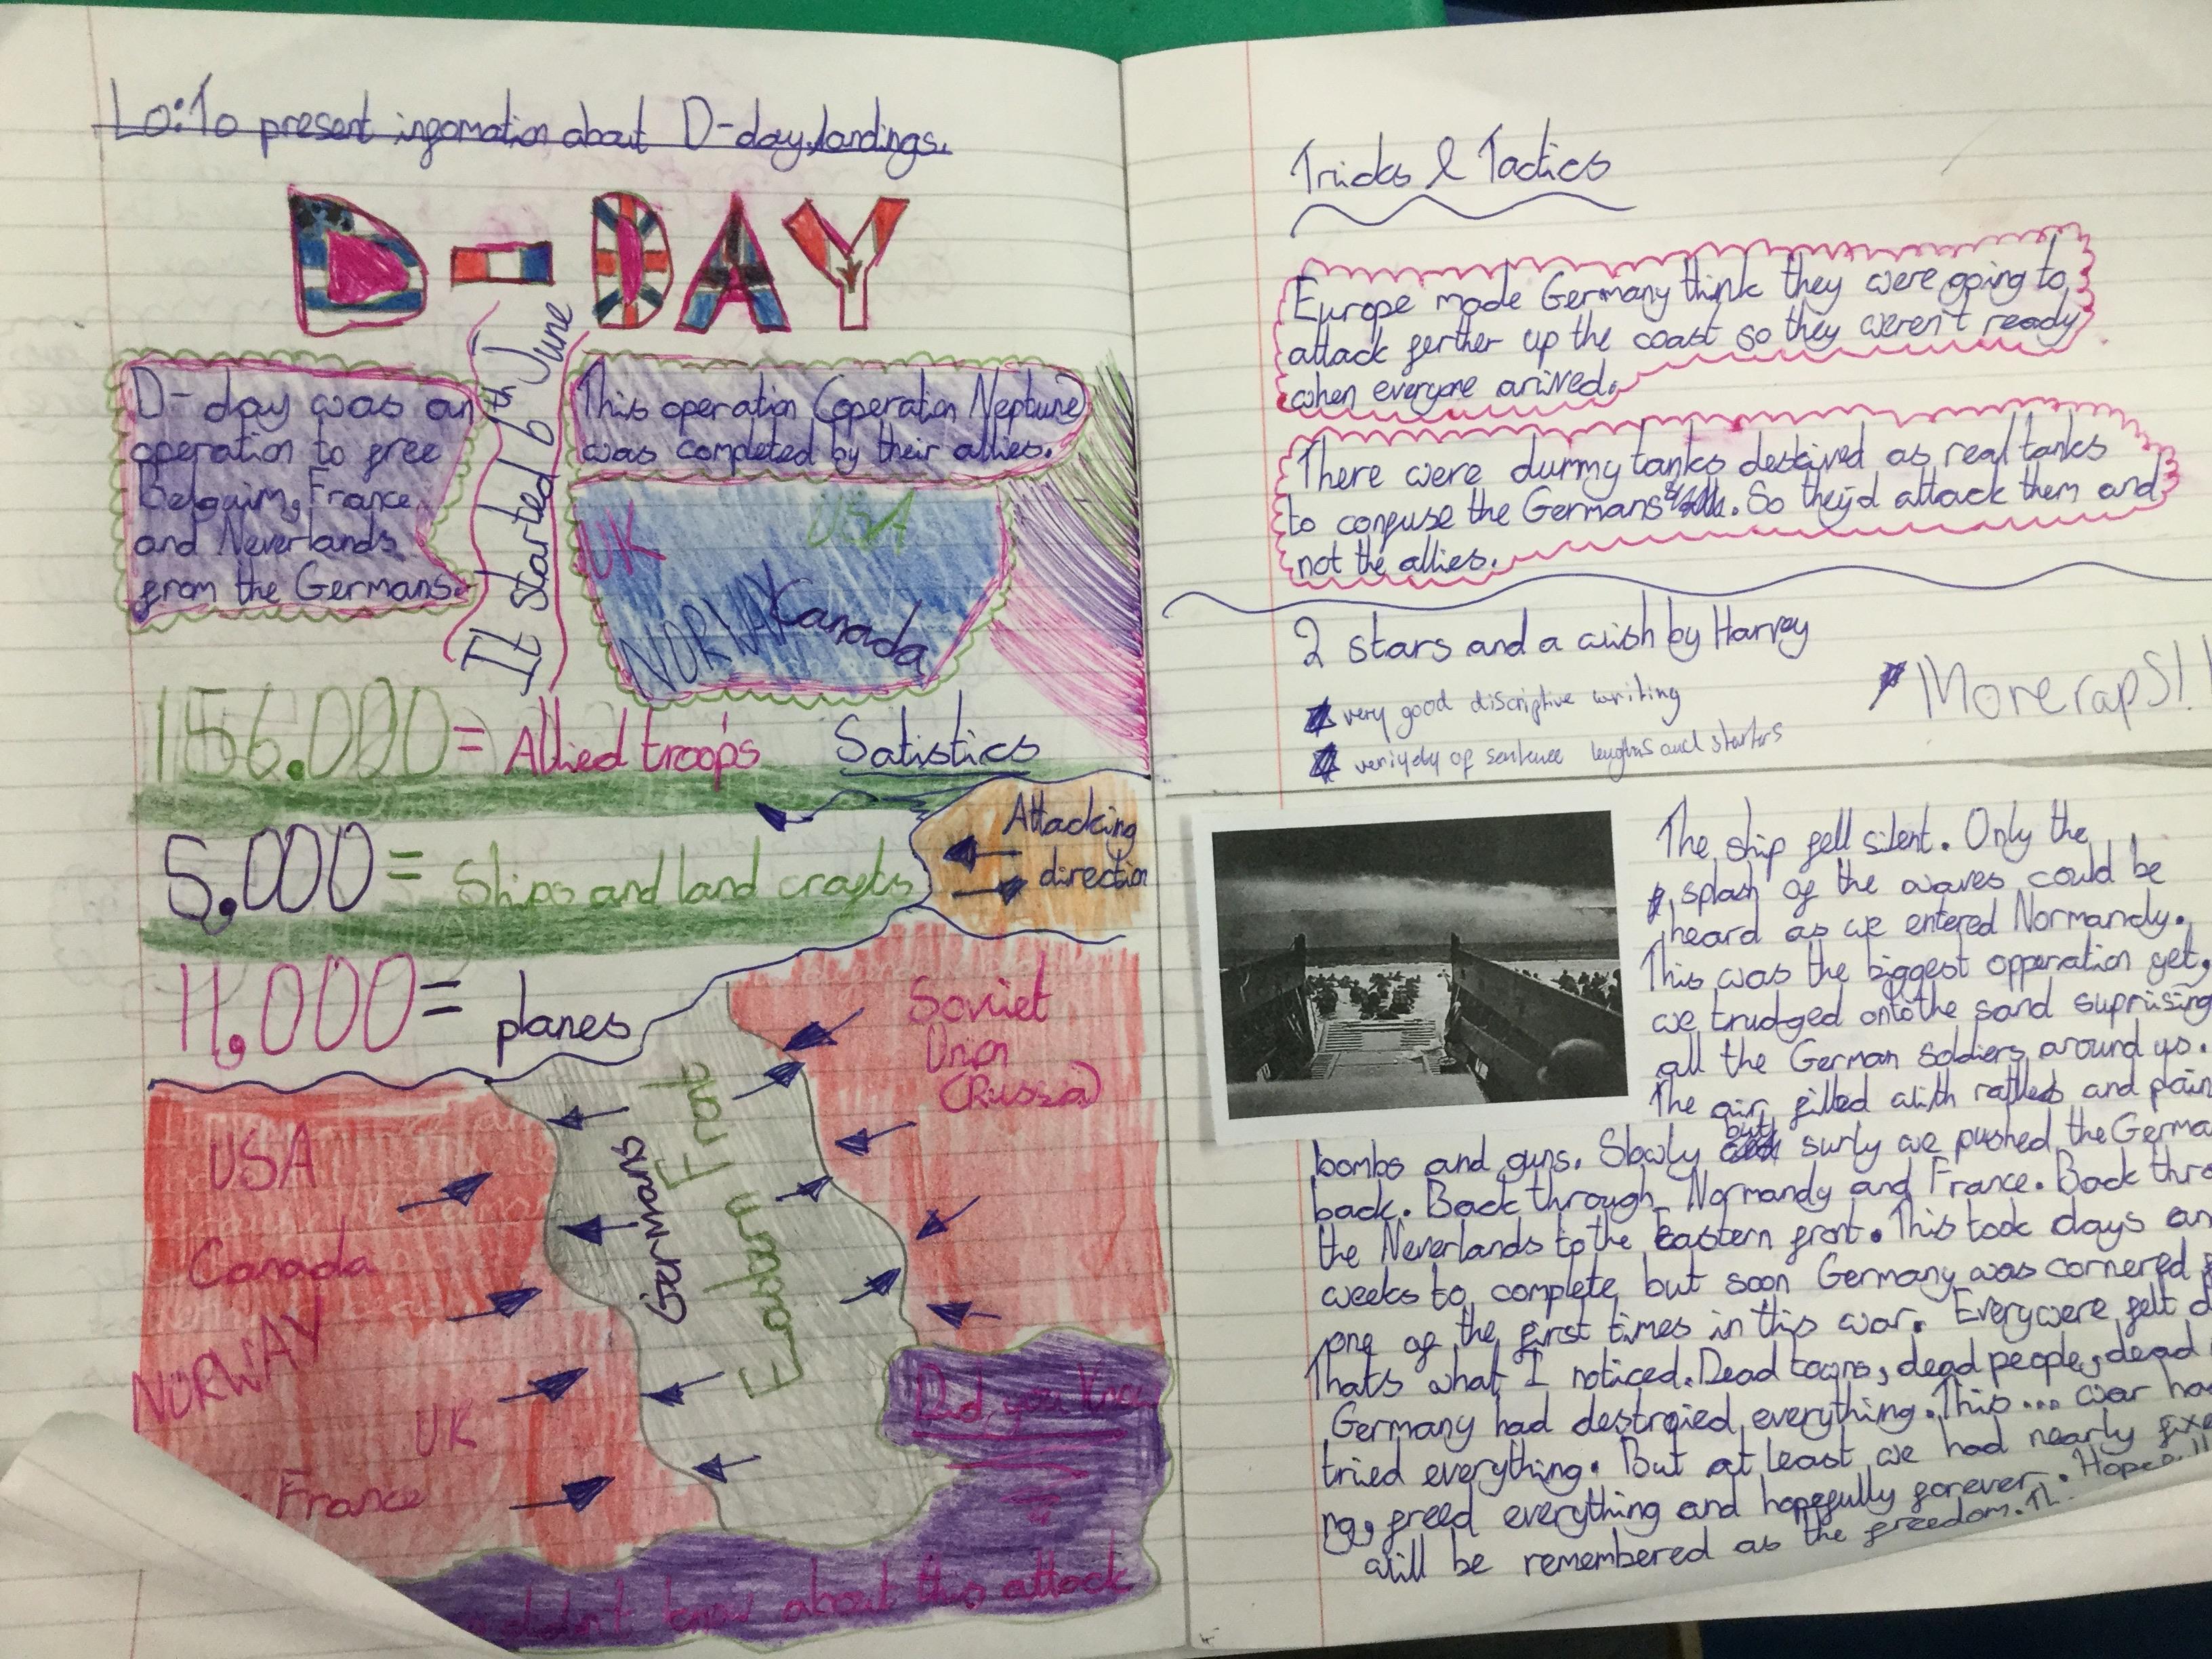 Lo: To present ingomation about D-day landings.
D-DAY
D-day was an
operation to free
Belguim, France
and Neverlands
from the Germans.
It started 6th June
This operation (operation Neptune)
was completed by their allies.
UK
USA
NORWAY
Canada
156.000 = Allied troops
Satistics
5.000 = Ships and land crafts
11,000 = planes
Attacking
direction
USA
Canada
NORWAY
UK
France
Germans
Europium Fort
Soviet
Union
(Russa)
Did you Know
didn't know about this attack
Tricks & Tactics
Europe made Germany think they were going to
attack ferther up the coast so they weren't ready
when everyone arived.
There were dummy tanks desgived as real tanks
to confuse the Germans. So they'd attack them and
not the allies.
2 stars and a wish by Harvey
very good discriptive writing
of sentence lengths and starters
More raps!!
The ship fell silent. Only the
splash of the waves could be
heard as we entered Normandy.
This was the biggest opperation yet,
we trudged onto the sand suprising
all the German soldiers around us.
The air filled with and pain
bombs and guns. Slowly but surly we pushed the Germa
back. Back through Normandy and France. Back thro
the Neverlands to the Eastern front. This took days an
weeks to complete but soon Germany was cornered
one of the first times in this war. Everywere felt d
Thats what I noticed. Dead towns, dead people, dead
Germany had destroied everything. This... war ha
tried everything. But at least we had nearly fixe
ng, freed everything and hopefully forever.
will be remembered as the freedom.